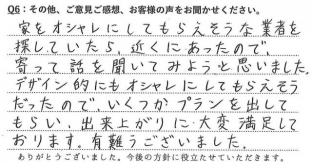 Q6：その他、ご意見ご感想、お客様の声をお聞かせください。
家をオシャレにしてもらえそうな業者を
探していたら、近くにあったので、
寄って話を聞いてみようと思いました。
デザイン的にもオシャレにしてもらえそう
だったので、いくつかプランを出して
もらい、出来上がりに大変満足して
おります。有難うございました。
ありがとうございました。今後の方針に役立たせていただきます。